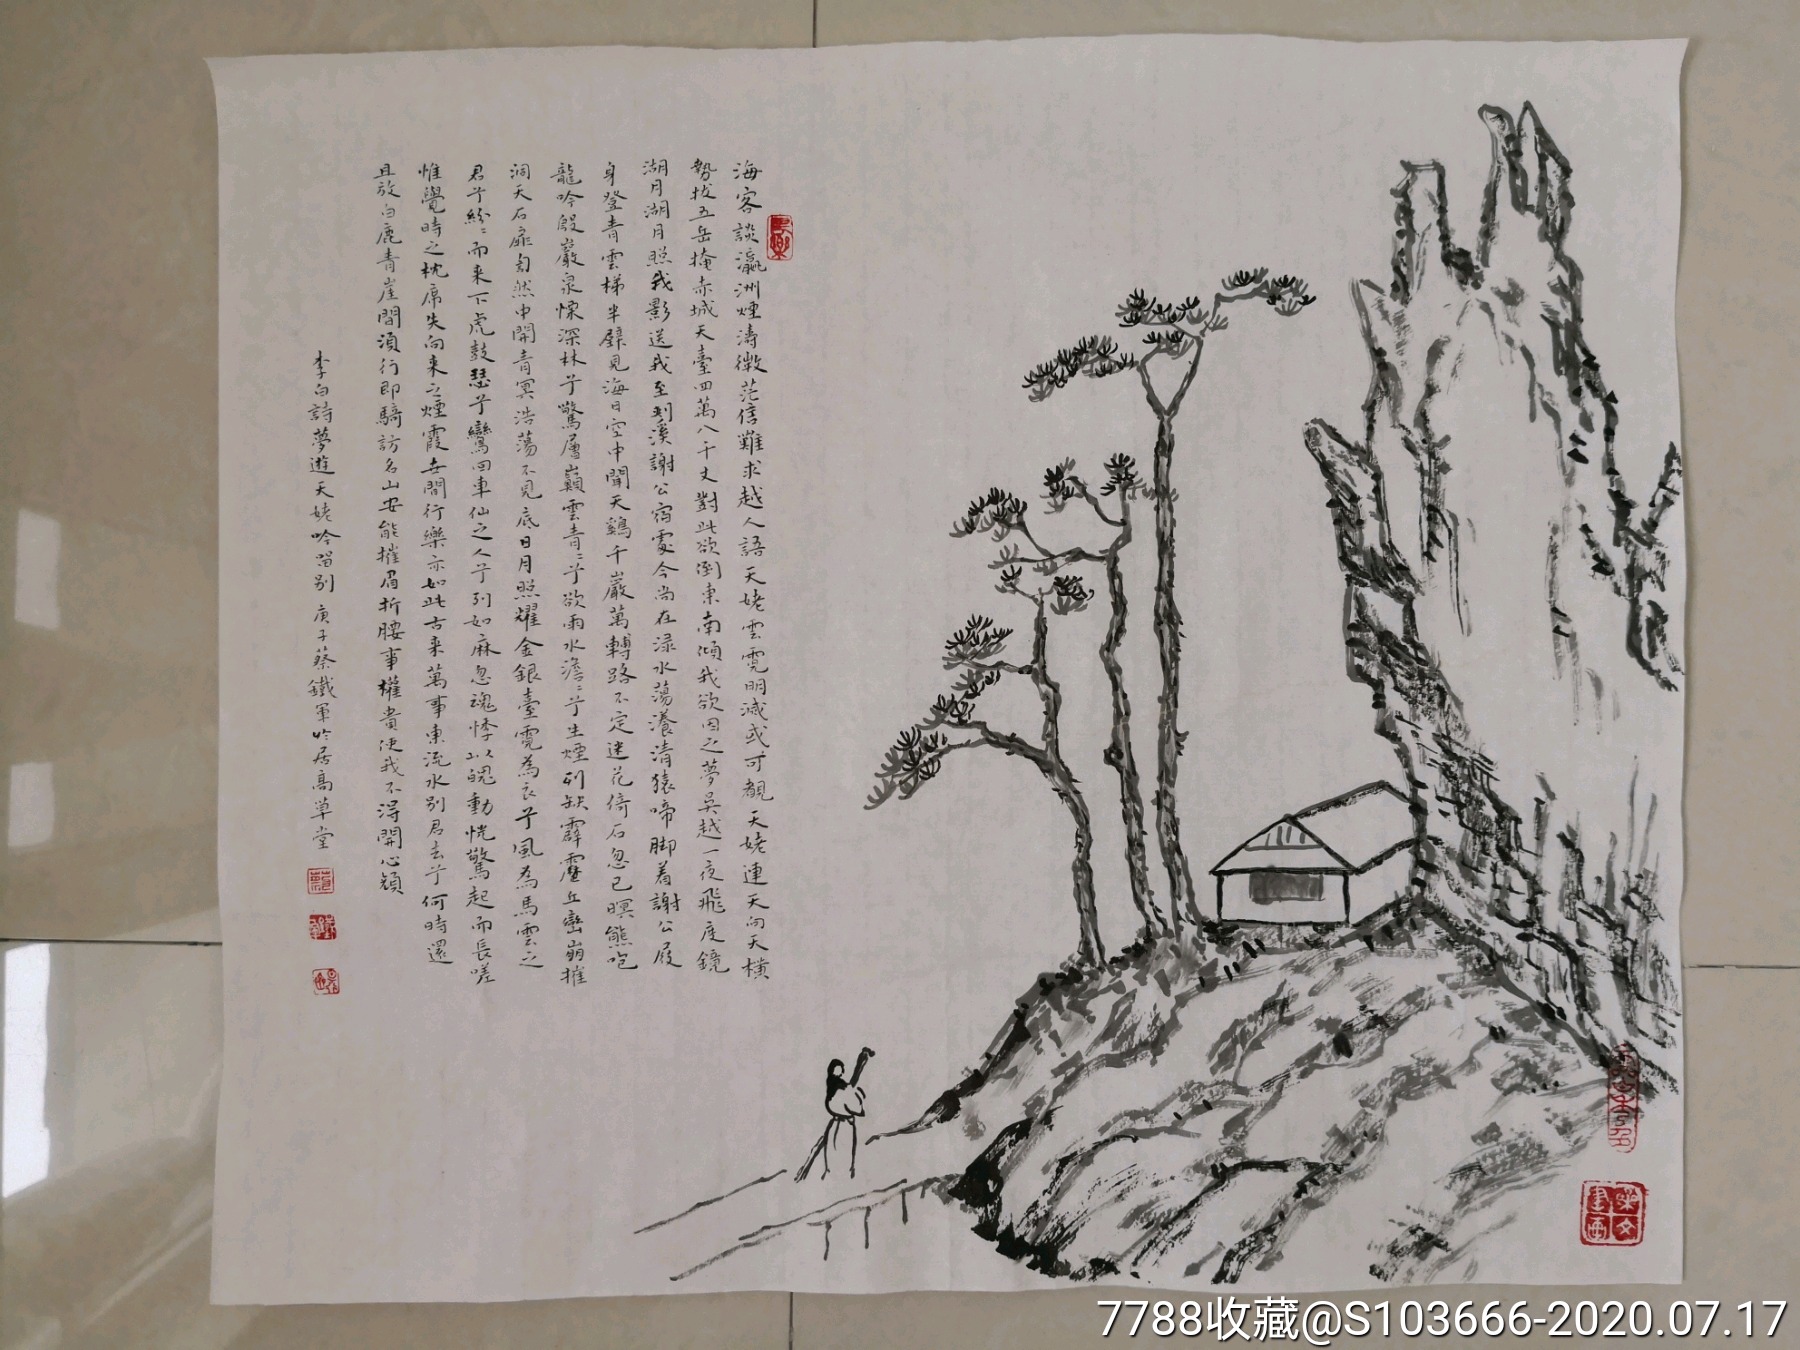 海客談瀛洲煙濤微茫信難求越人語天姥雲霓明滅或可覩天姥連天向天橫
勢拔五岳掩赤城天臺四萬八千丈對此欲倒東南傾我欲因之夢吳越一夜飛度鏡
湖月湖月照我影送我至剡溪謝公宿處今尚在渌水蕩漾清猿啼脚着謝公屐
身登青雲梯半壁見海日空中聞天鷄千巖萬轉路不定迷花倚石忽已暝熊咆
龍吟殷巖泉慄深林兮驚層巔雲青〻兮欲雨水澹〻兮生煙列缺霹靂丘巒崩摧
洞天石扉訇然中開青冥浩蕩不見底日月照耀金銀臺霓為衣兮風為馬雲之
君兮紛〻而来下虎鼓瑟兮鸞回車仙之人兮列如麻忽魂悸以魄動恍驚起而長嗟
惟覺時之枕席失向来之煙霞世間行樂亦如此古来萬事東流水別君去兮何時還
且放白鹿青崖間須行即騎訪名山安能摧眉折腰事權貴使我不得開心顏
李白詩夢遊天姥吟留別 庚子蔡鐵軍於居高草堂
7788收藏@S103666-2020.07.17